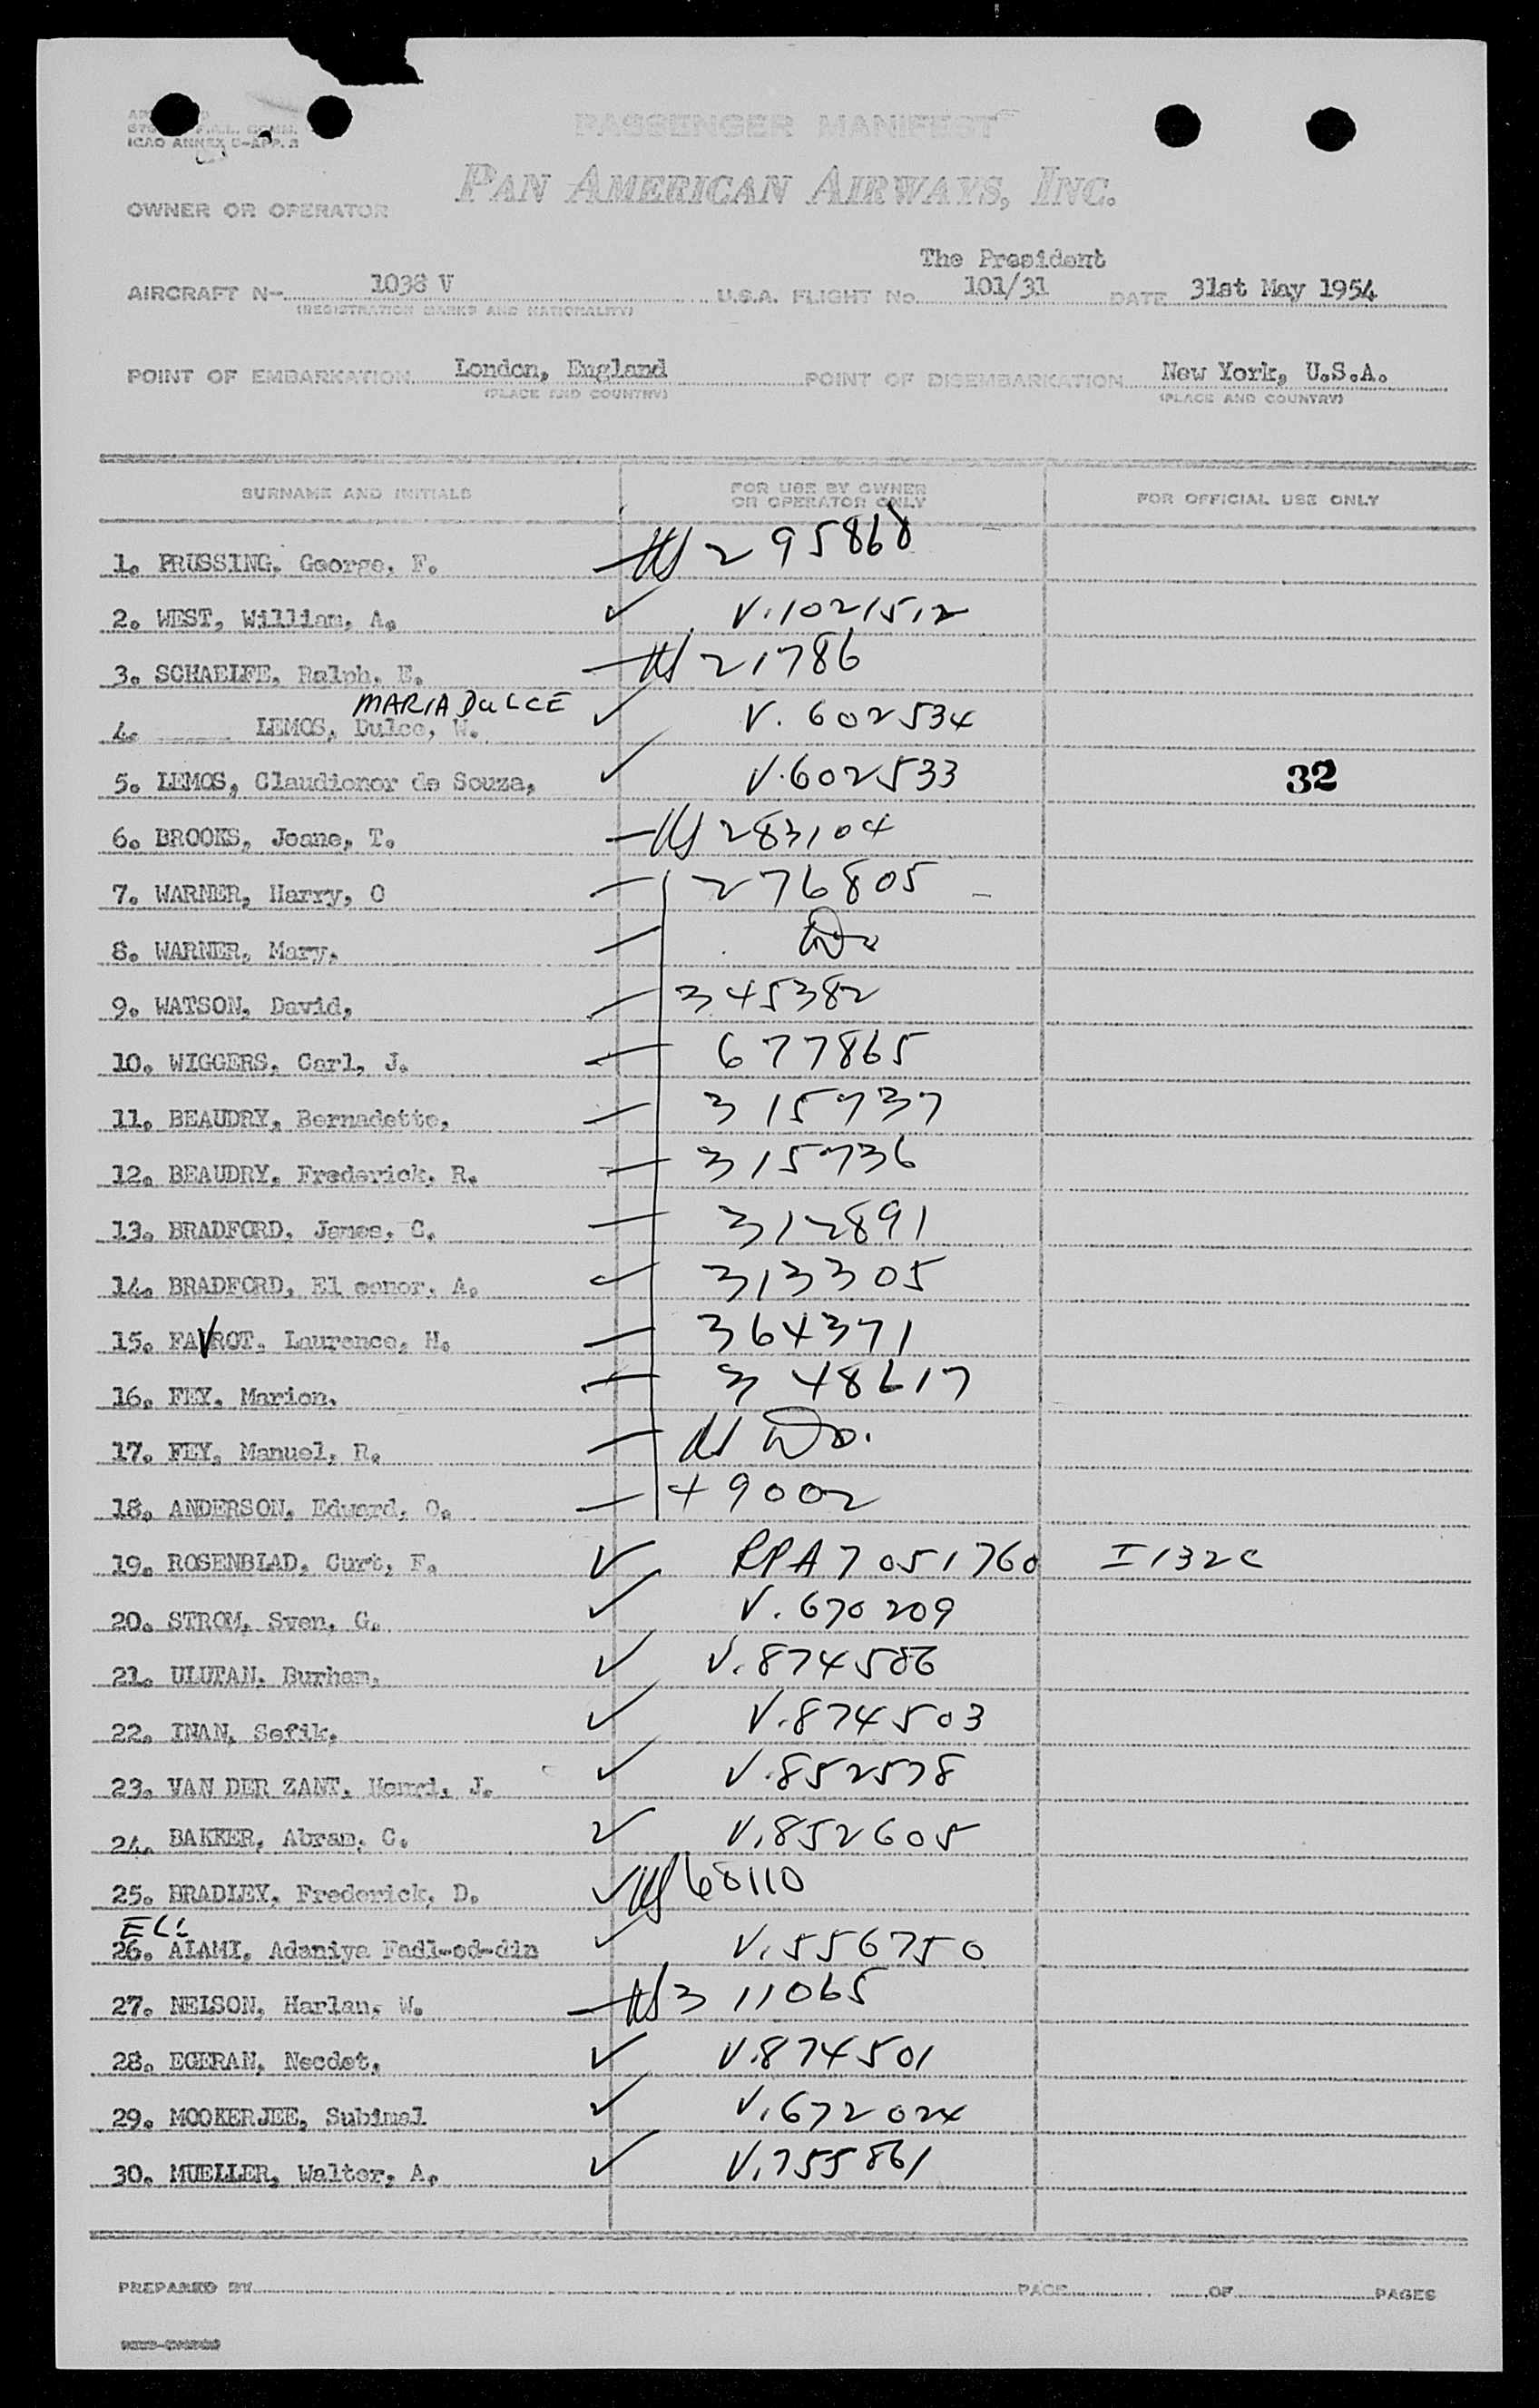 ICAO ANNEX 9-APP. 3
PASSENGER MANIFEST
PAN AMERICAN AIRWAYS, INC.
OWNER OR OPERATOR
The President
AIRCRAFT N- 1038 V U.S.A. FLIGHT No. 101/31 DATE 31st May 1954
(REGISTRATION MARKS AND NATIONALITY)
POINT OF EMBARKATION London, England POINT OF DISEMBARKATION New York, U.S.A.
(PLACE AND COUNTRY) (PLACE AND COUNTRY)
SURNAME AND INITIALS FOR USE BY OWNER OR OPERATOR ONLY FOR OFFICIAL USE ONLY
1. PRUSSING, George, F. US 295868
2. WEST, William, A. V.1021512
3. SCHAELFE, Ralph, E. US 21786
MARIA DULCE
4. LEMOS, Dulce, W. V. 602534
5. LEMOS, Claudionor de Souza, V.602533 32
6. BROOKS, Joane, T. US 283104
7. WARNER, Harry, O 276805
8. WARNER, Mary, Do
9. WATSON, David, 345382
10. WIGGERS, Carl, J. 677865
11. BEAUDRY, Bernadette, 315737
12. BEAUDRY, Frederick, R. 315736
13. BRADFORD, James, C. 312891
14. BRADFORD, El eonor, A. 313305
15. FAVROT, Laurence, H. 364371
16. FEY, Marion, 348617
17. FEY, Manuel, R. US Do.
18. ANDERSON, Edward, O. 49002
19. ROSENBLAD, Curt, F. RPA7051760 I132C
20. STROM, Sven, G. V.670209
21. ULUTAN, Burhan, V.874586
22. INAN, Sefik, V.874503
23. VAN DER ZANT, Henri, J. V.852578
24. BAKKER, Abram, C. V.852605
25. BRADLEY, Frederick, D. US 68110
EL
26. ALAMI, Adaniya Fadl-ed-din V.556750
27. NELSON, Harlan, W. US 311065
28. EGERAN, Necdet, V.874501
29. MOOKERJEE, Subimal V.672024
30. MUELLER, Walter, A. V.755861
PREPARED BY PAGE OF PAGES